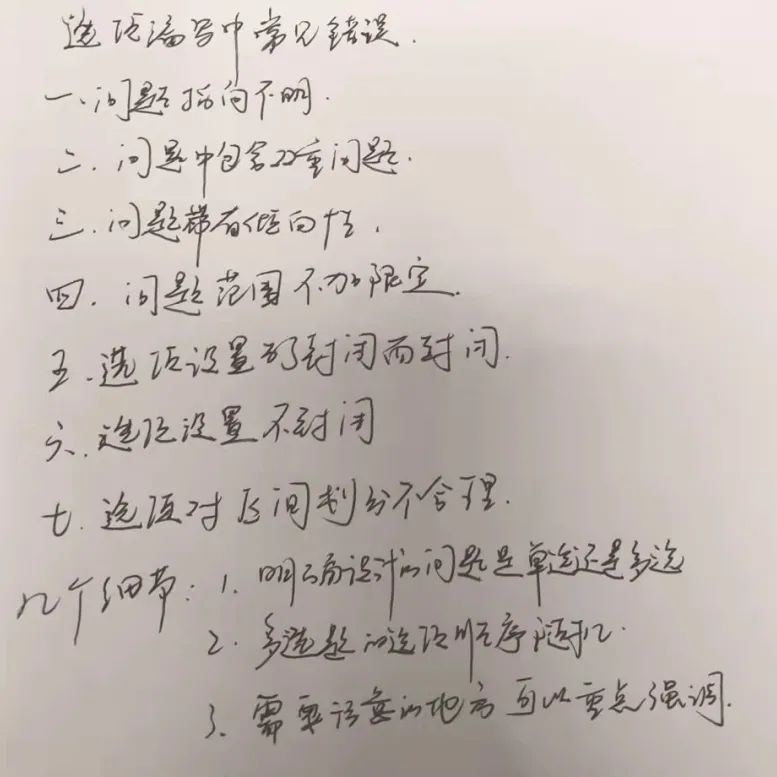 选项编写中常见错误.
一.问题指向不明.
二.问题中包含双重问题.
三.问题带有倾向性.
四.问题范围不加限定.
五.选项设置为封闭而封闭.
六.选项设置不封闭
七.选项对区间划分不合理.
几个细节:1.明确设计的问题是单选还是多选
2.多选题的选项顺序随机.
3.需要注意的地方可以重点强调.